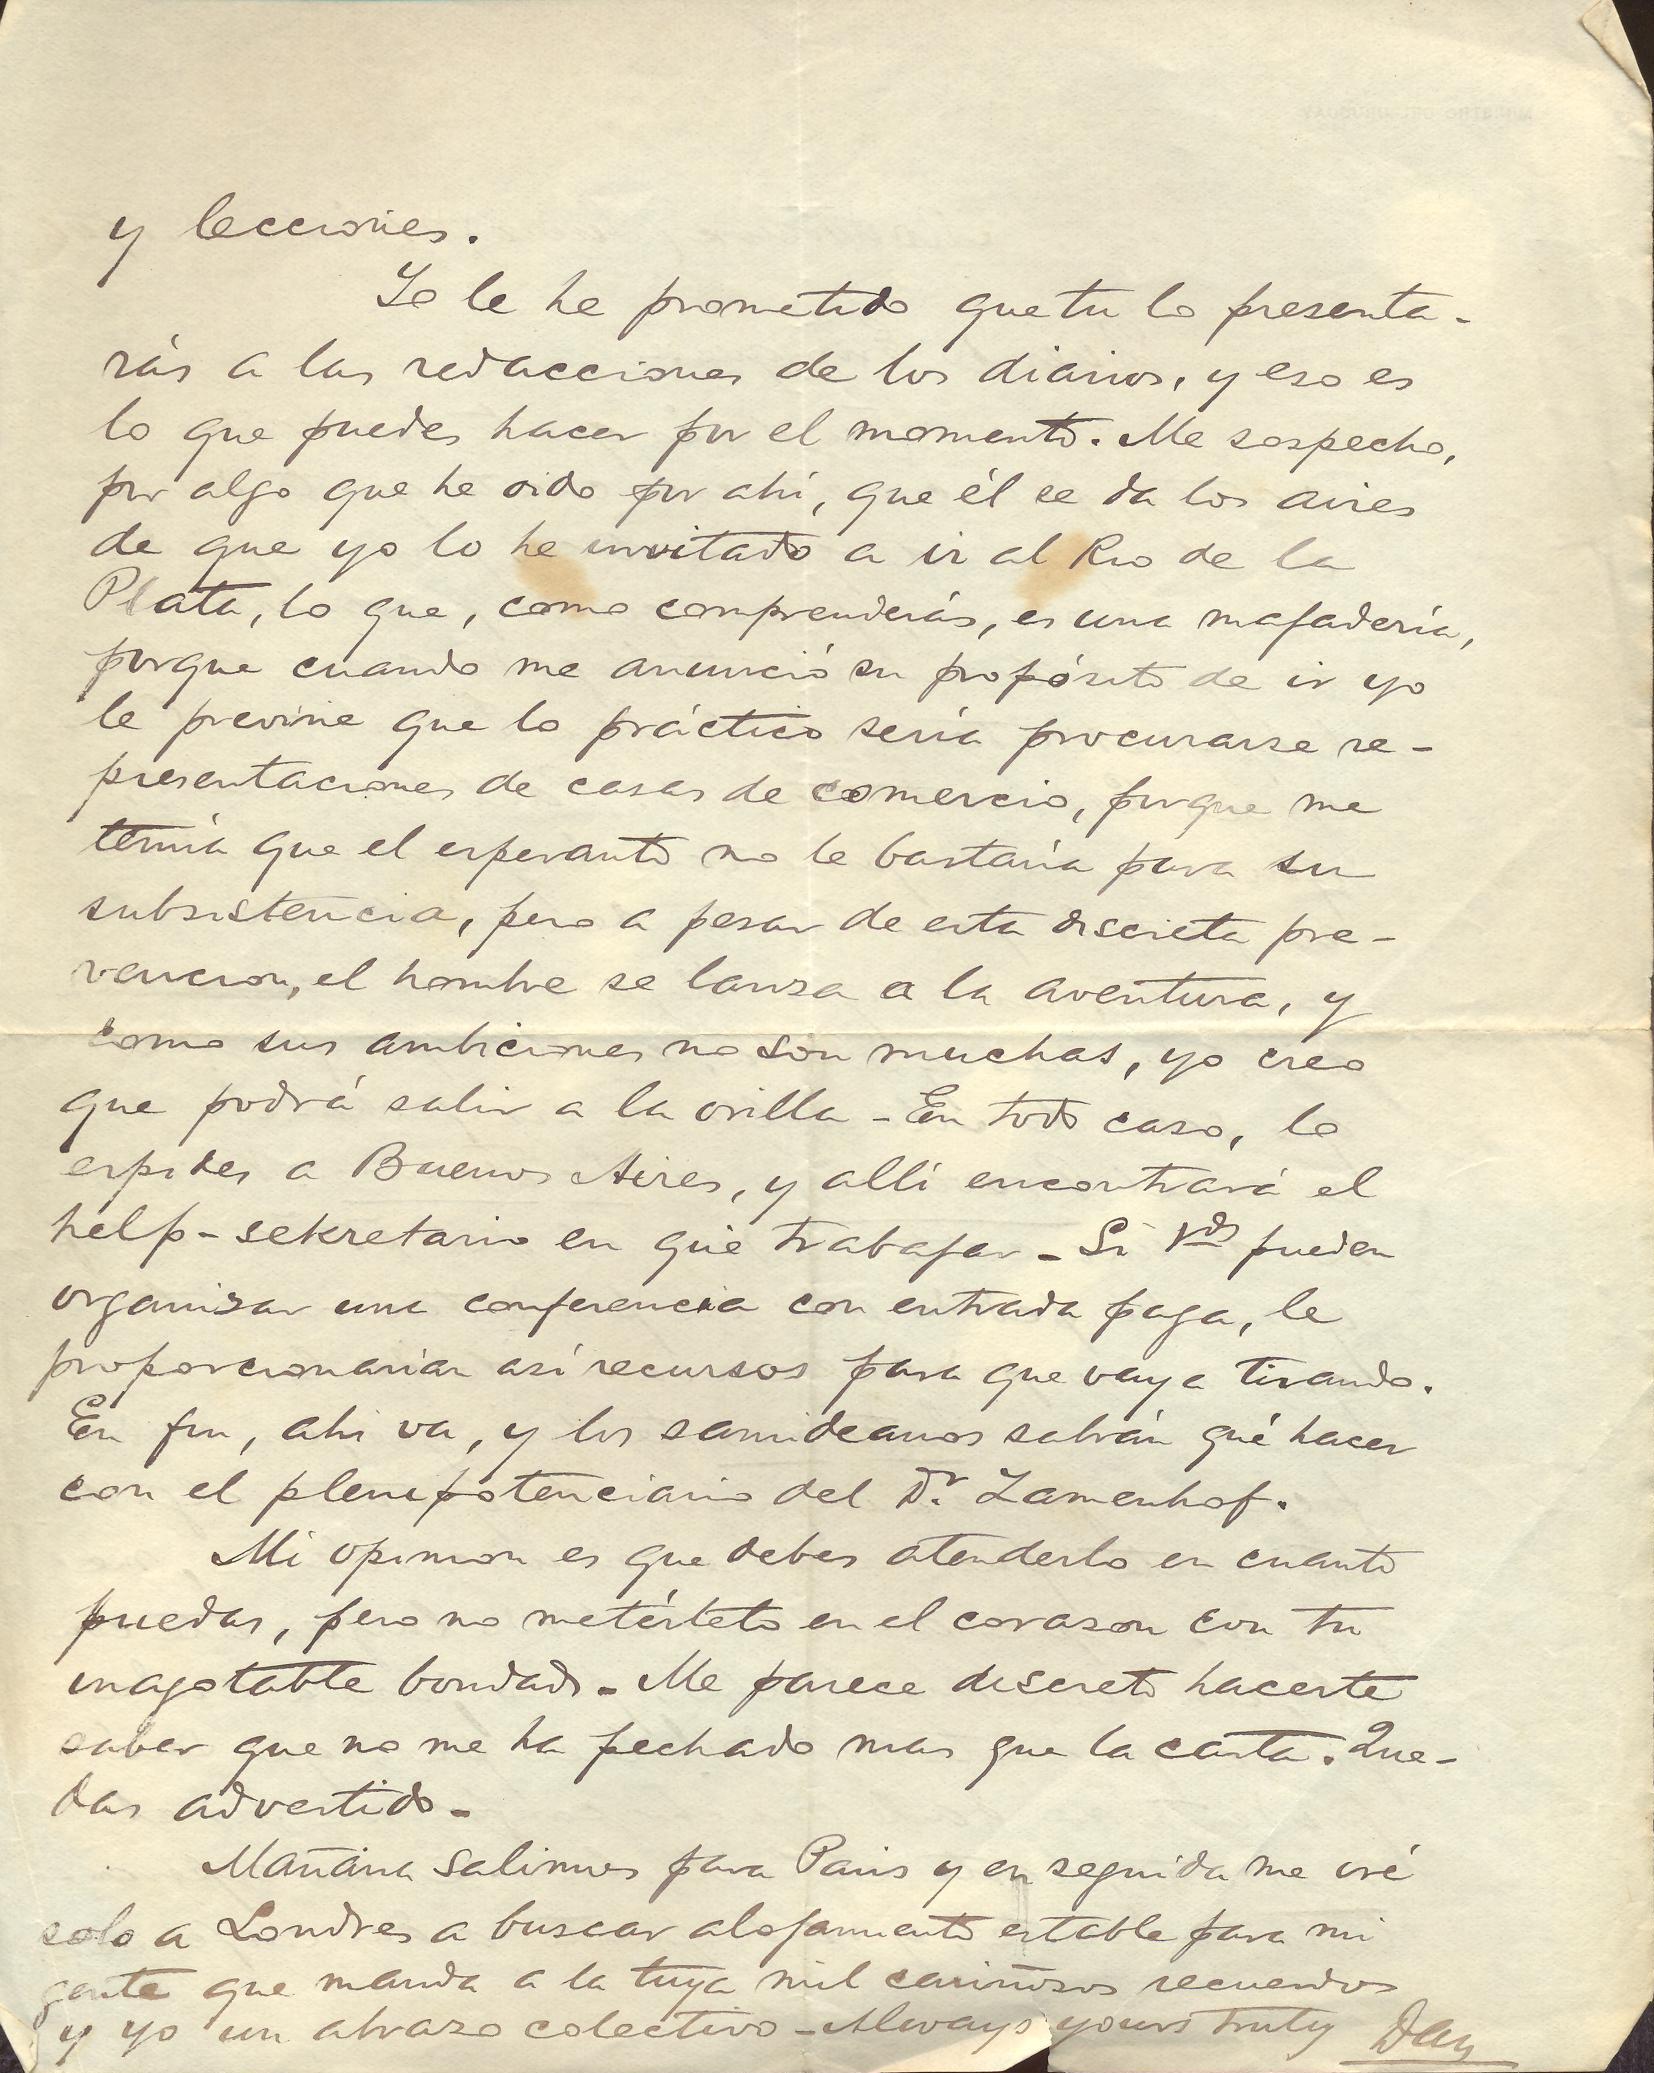 MINISTRO DEL URUGUAY
y lecciones.
Yo le he prometido que tu lo presenta-
rás a las redacciones de los diarios, y eso es
lo que puedes hacer por el momento. Me sospecho,
por algo que he oido por ahí, que él se da los aires
de que yo lo he invitado a ir al Rio de la
Plata, lo que, como comprenderás, es una majadería,
porque cuando me anunció su propósito de ir yo
le previne que lo práctico sería procurarse re-
presentaciones de casas de comercio, porque me
temía que el esperanto no le bastaría para su
subsistencia, pero a pesar de esta discreta pre-
vencion, el hombre se lanza a la aventura, y
como sus ambiciones no son muchas, yo creo
que podrá salir a la orilla - En todo caso, lo
espides a Buenos Aires, y allí encontrará el
help-sekretario en qué trabajar - Si Vds pueden
organizar una conferencia con entrada paga, le
proporcionarian asi recursos para que vaya tirando.
En fin, ahi va, y los samideanos sabrán qué hacer
con el plenipotenciario del Dr. Zamenhof.
Mi opinion es que debes atenderlo en cuanto
puedas, pero no metértelo en el corazon con tu
inagotable bondad - Me parece discreto hacerte
saber que no me ha pechado mas que la carta. Que-
das advertido -
Mañana salimos para Paris y en seguida me iré
solo a Londres a buscar alojamiento estable para mi
gente que manda a la tuya mil cariñosos recuerdos
y yo un abrazo colectivo - Always yours truly Dan